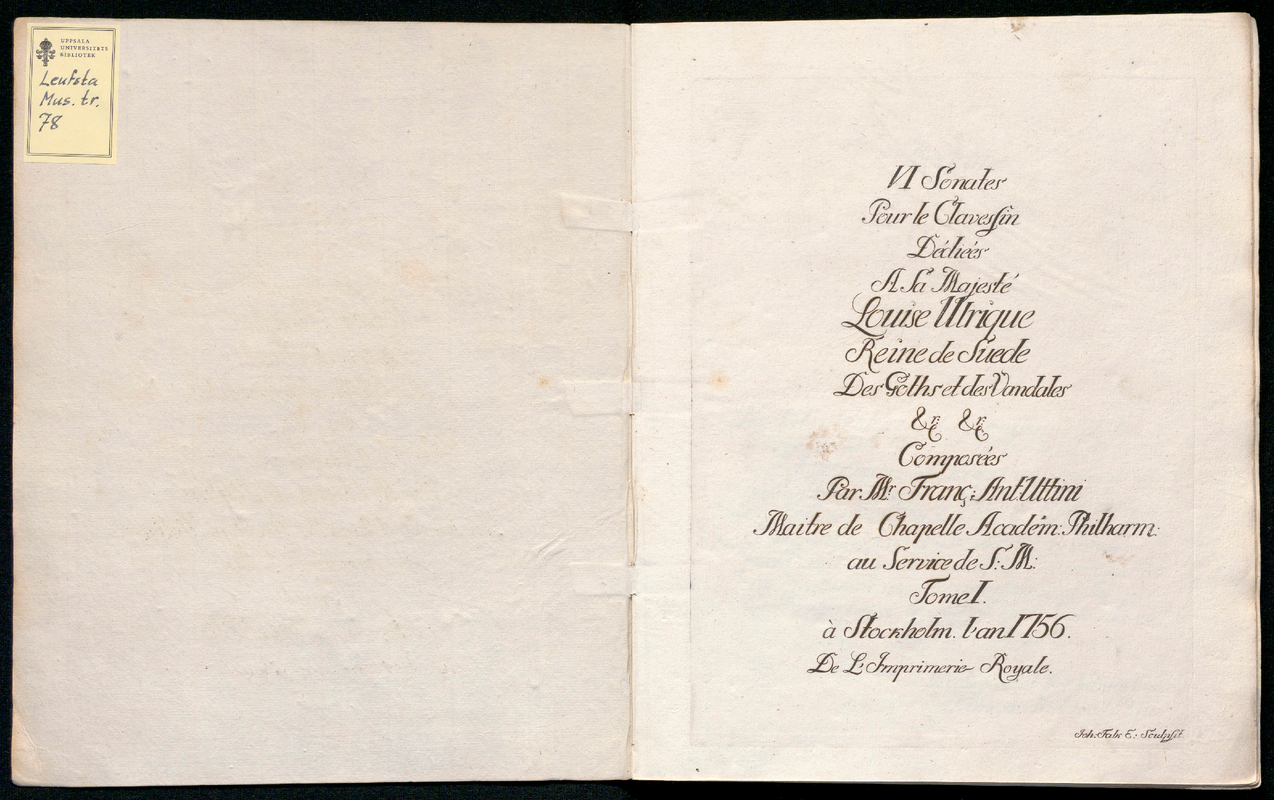 UPPSALA
UNIVERSITETS
BIBLIOTEK
Leufsta
Mus. tr.
78
VI Sonates
Pour le Clavessin
Dédiées
A Sa Majesté
Louise Ulrique
Reine de Suede
Des Goths et des Vandales
&c. &c.
Composées
Par Mr. Franç: Ant: Uttini
Maitre de Chapelle Académ: Philharm:
au Service de S: M:
Tome I.
à Stockholm. l'an 1756.
De L'Imprimerie Royale.
Joh: Fabr: E: Sculpsit